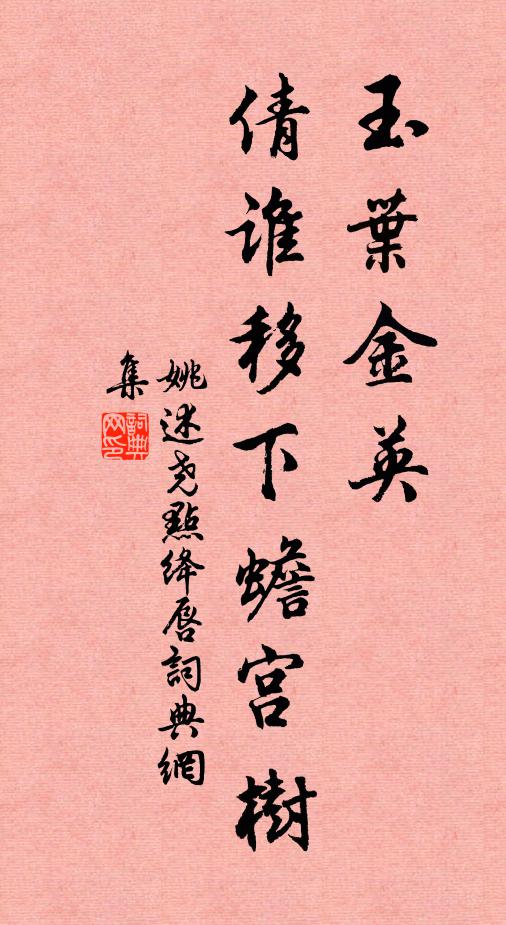 玉葉金英
倩誰移下蟾宮樹
姚述尧點绛唇詞典網
集
詞典
网印